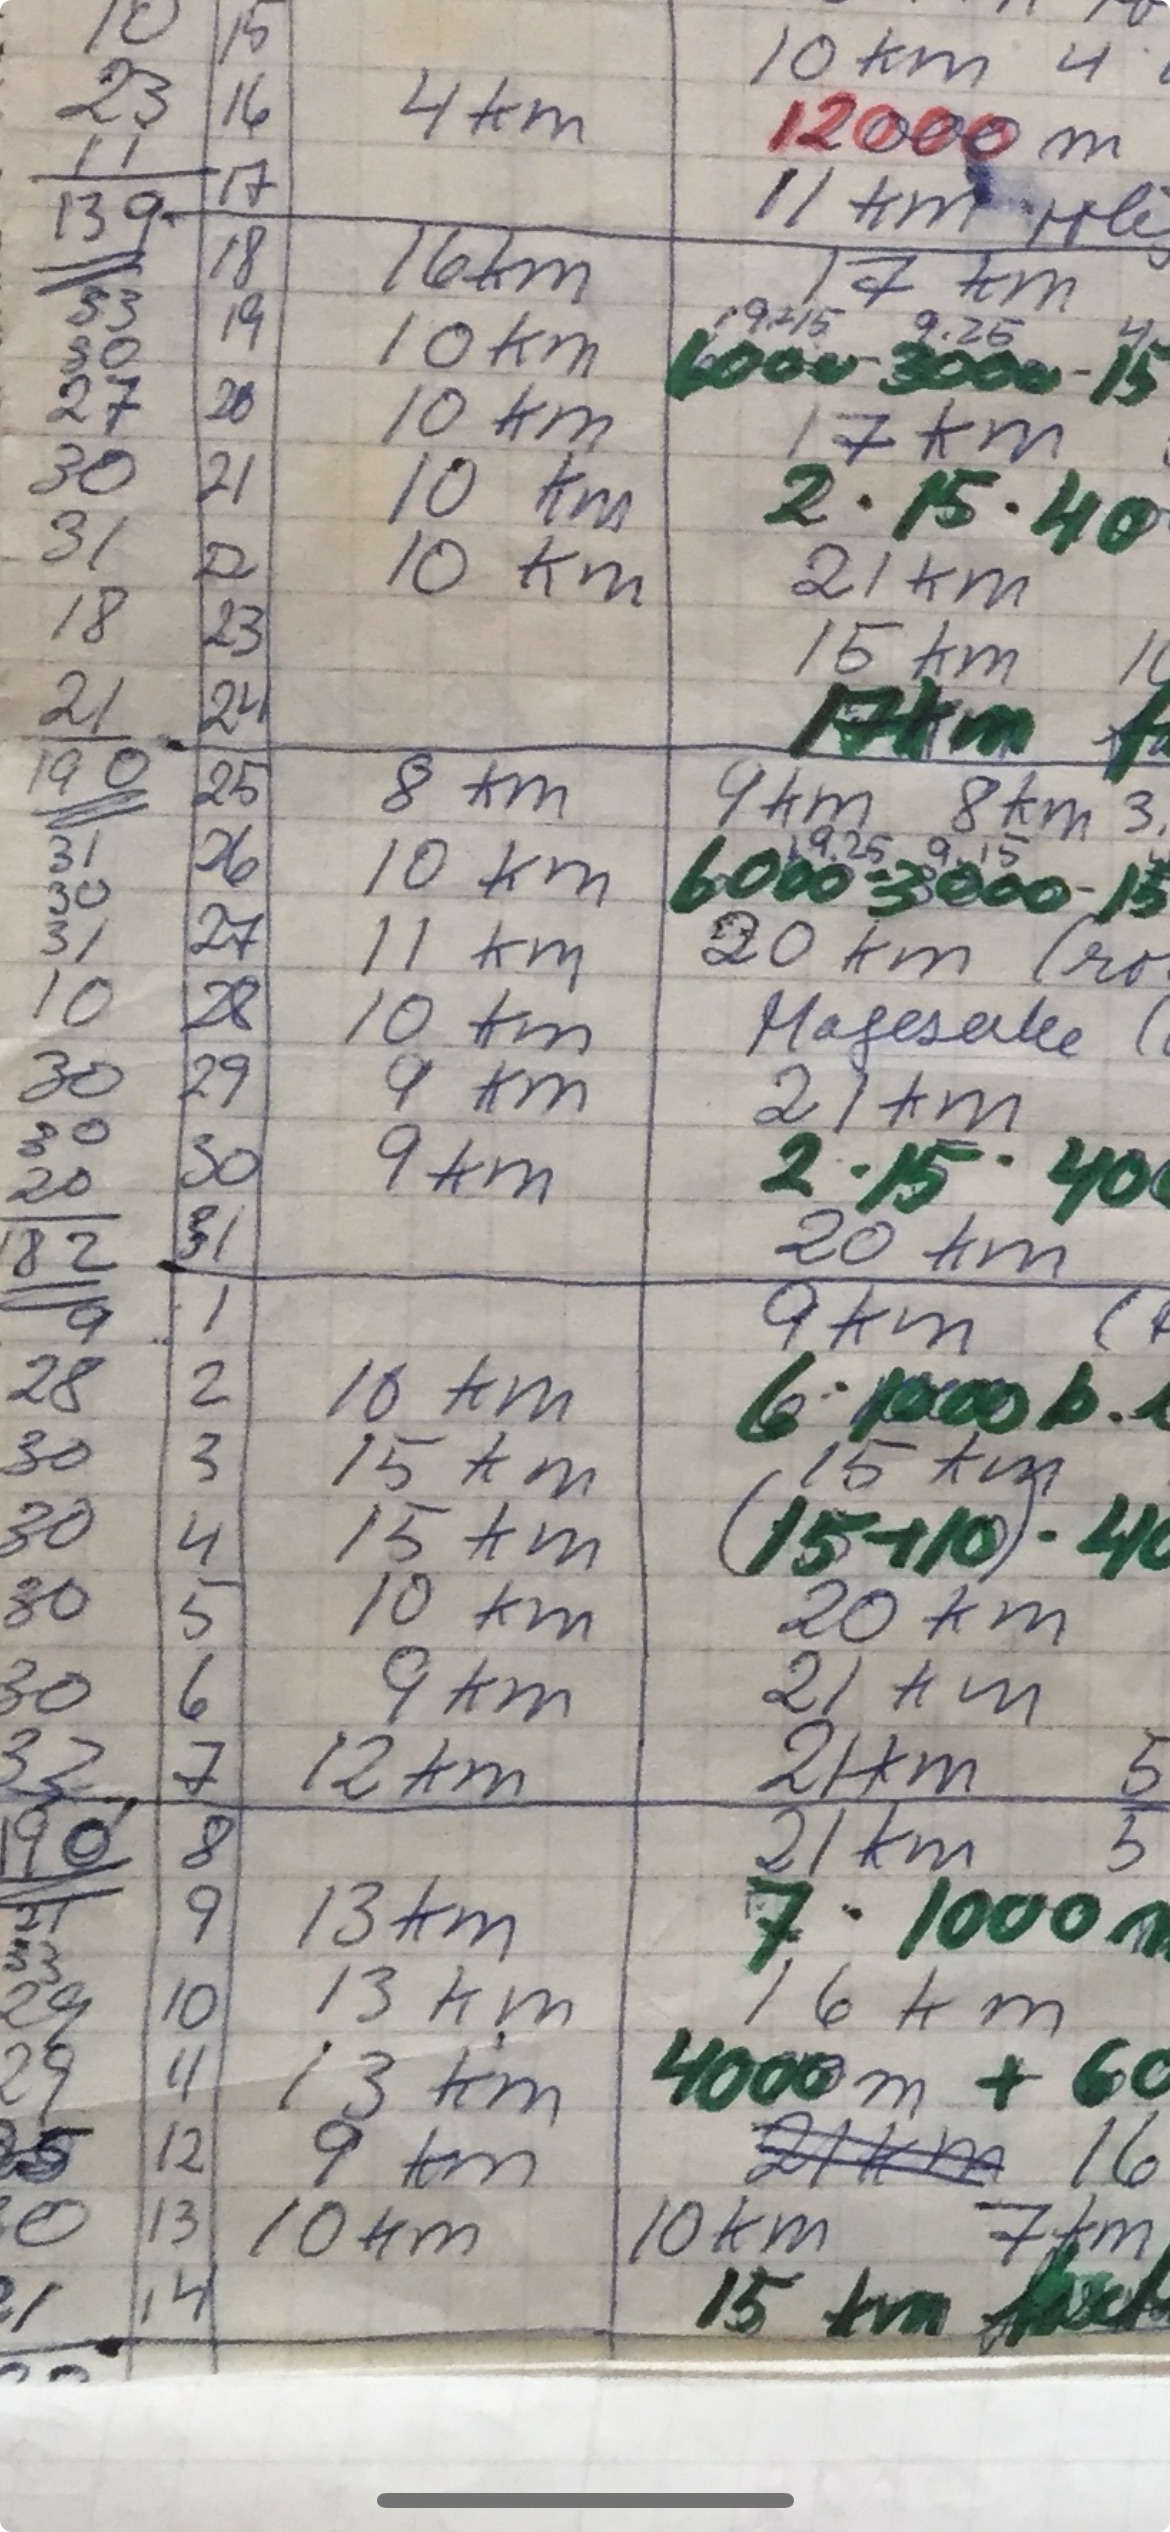 10 15 10 km 4
23 16 4 km 12000 m
11 17 11 km
139 18 16 km 17 km
33 19 10 km 6000-3000-15
30 9.25
27 20 10 km 17 km
30 21 10 km 2·15·40
31 22 10 km 21 km
18 23 15 km
21 24 17km
190 25 8 km 9km 8km 3.
31 26 10 km 6000-3000-15
30 19.25 9.15
31 27 11 km 20 km
10 28 10 km
30 29 9 km 21 km
30 30 9 km 2·15·400
20 31 20 km
182
9 1 9 km
28 2 10 km 6·1000 b.
30 3 15 km 15 km
30 4 15 km (15+10)·40
30 5 10 km 20 km
30 6 9 km 21 km
32 7 12 km 21km 5
190 8 21 km 5
21 9 13 km 7·1000 m
33
29 10 13 km 16 km
29 11 13 km 4000 m + 60
25 12 9 km 21km 16
30 13 10 km 10 km 7km
21 14 15 km